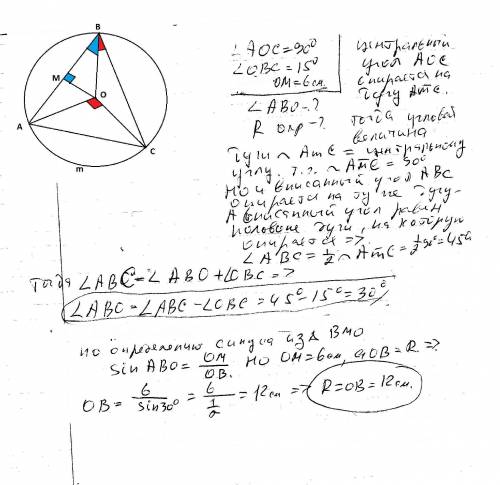 B
M
O
A
C
m
∠AOC=90°
∠OBC=15°
OM=6см.
∠ABO-?
R окр-?
центральный
угол AOC
опирается на
дугу AmC.
тогда угловая
величина
дуги ◠ AmC = центральному
углу, т.е. ◠ AmC = 90°
Но и вписанный угол ABC
опирается на ту же дугу.
А вписанный угол равен
половине дуги, на которую
опирается =>
∠ABC = 1/2 ◠ AmC = 1/2 90° = 45°
тогда ∠ABC = ∠ABO + ∠OBC =>
∠ABO = ∠ABC - ∠OBC = 45° - 15° = 30°
по определению синуса из Δ BMO
sin ABO = OM/OB. Но OM=6см, а OB=R =>
OB = 6/sin30° = 6/(1/2) = 12см => R=OB=12см.